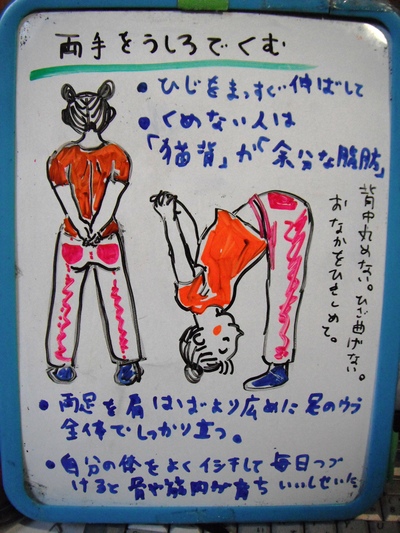 両手をうしろでくむ
・ひじをまっすぐ伸ばして
・くめない人は
「猫背」か「余分な脂肪」
背中丸めない。ひざ曲げない。
おなかをひきしめて。
・両足を肩はばより広めに足のウラ
全体でしっかり立つ。
・自分の体をよくイシキして毎日つづ
けると骨や筋肉が育ちいいしせいに